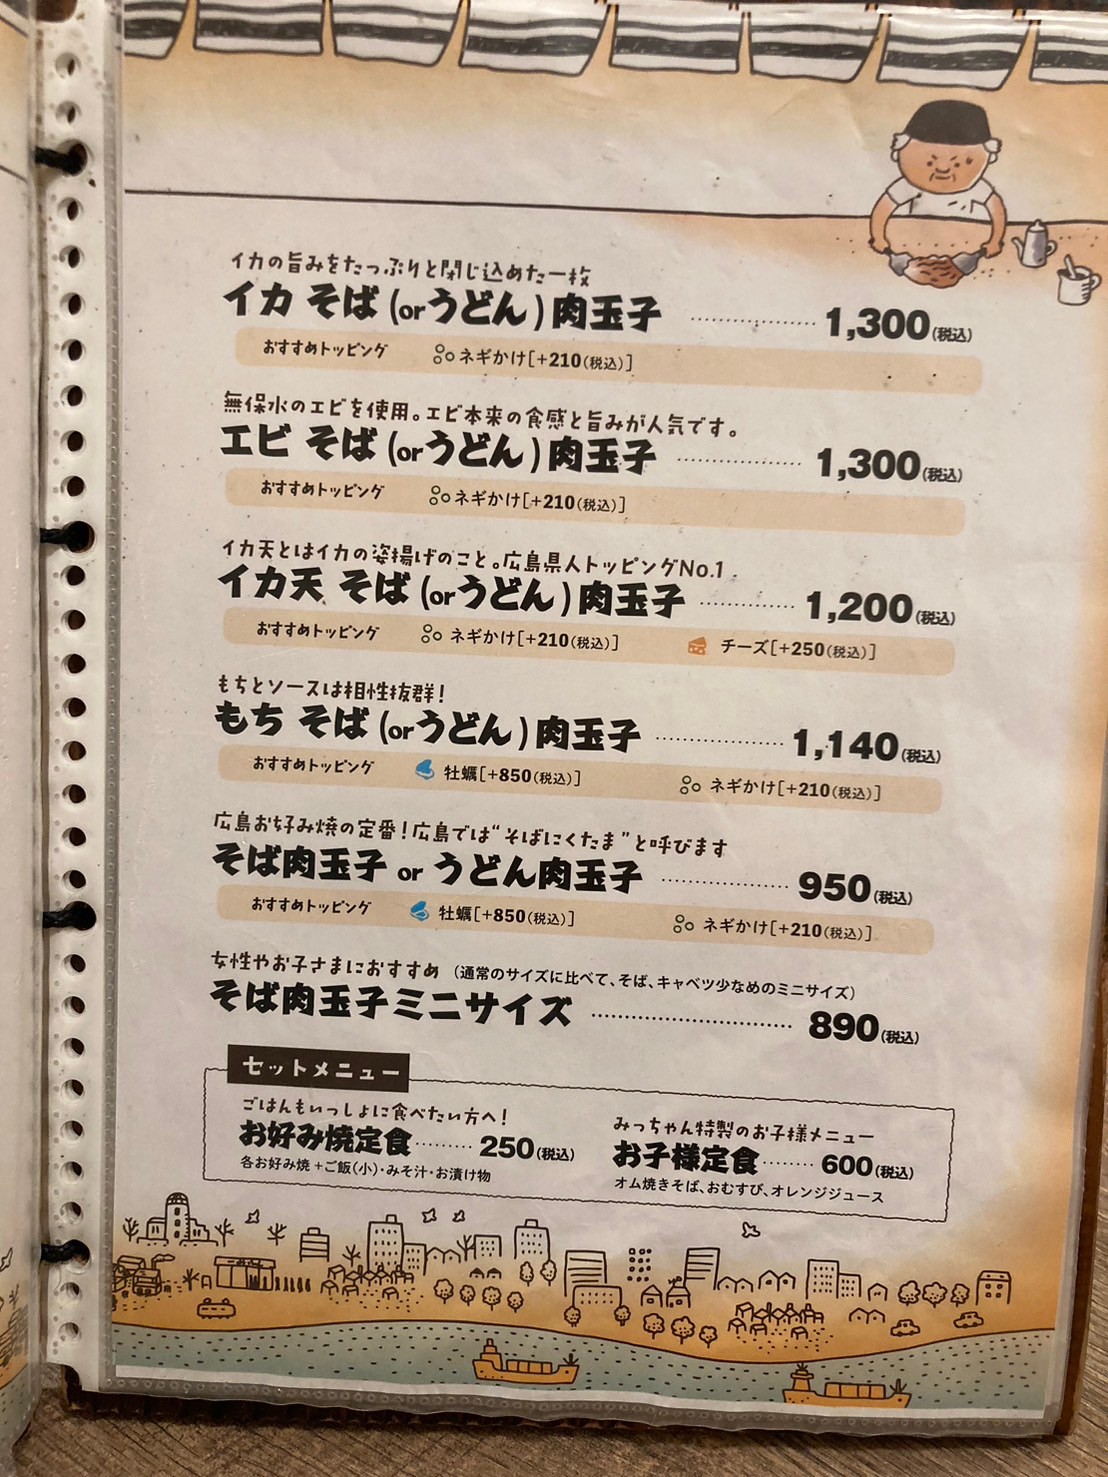 イカの旨みをたっぷりと閉じ込めた一枚
イカ そば(orうどん)肉玉子 ……………… 1,300(税込)
おすすめトッピング ネギかけ[+210(税込)]
無保水のエビを使用。エビ本来の食感と旨みが人気です。
エビ そば(orうどん)肉玉子 ……………… 1,300(税込)
おすすめトッピング ネギかけ[+210(税込)]
イカ天とはイカの姿揚げのこと。広島県人トッピングNo.1
イカ天 そば(orうどん)肉玉子 …………… 1,200(税込)
おすすめトッピング ネギかけ[+210(税込)] チーズ[+250(税込)]
もちとソースは相性抜群!
もち そば(orうどん)肉玉子 ……………… 1,140(税込)
おすすめトッピング 牡蠣[+850(税込)] ネギかけ[+210(税込)]
広島お好み焼の定番!広島では"そばにくたま"と呼びます
そば肉玉子 or うどん肉玉子 ……………… 950(税込)
おすすめトッピング 牡蠣[+850(税込)] ネギかけ[+210(税込)]
女性やお子さまにおすすめ (通常のサイズに比べて、そば、キャベツ少なめのミニサイズ)
そば肉玉子ミニサイズ ……………………… 890(税込)
セットメニュー
ごはんもいっしょに食べたい方へ!
お好み焼定食 ……… 250(税込)
各お好み焼+ご飯(小)・みそ汁・お漬け物
みっちゃん特製のお子様メニュー
お子様定食 …… 600(税込)
オム焼きそば、おむすび、オレンジジュース